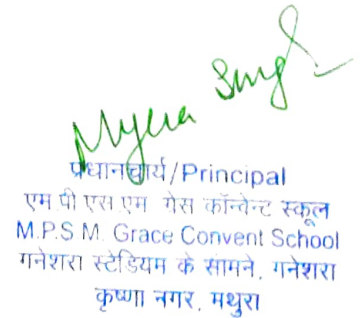 Myera Singh
प्रधानाचार्य/Principal
एम पी एस एम ग्रेस कॉन्वेन्ट स्कूल
M.P.S M. Grace Convent School
गनेशरा स्टेडियम के सामने, गनेशरा
कृष्णा नगर, मथुरा